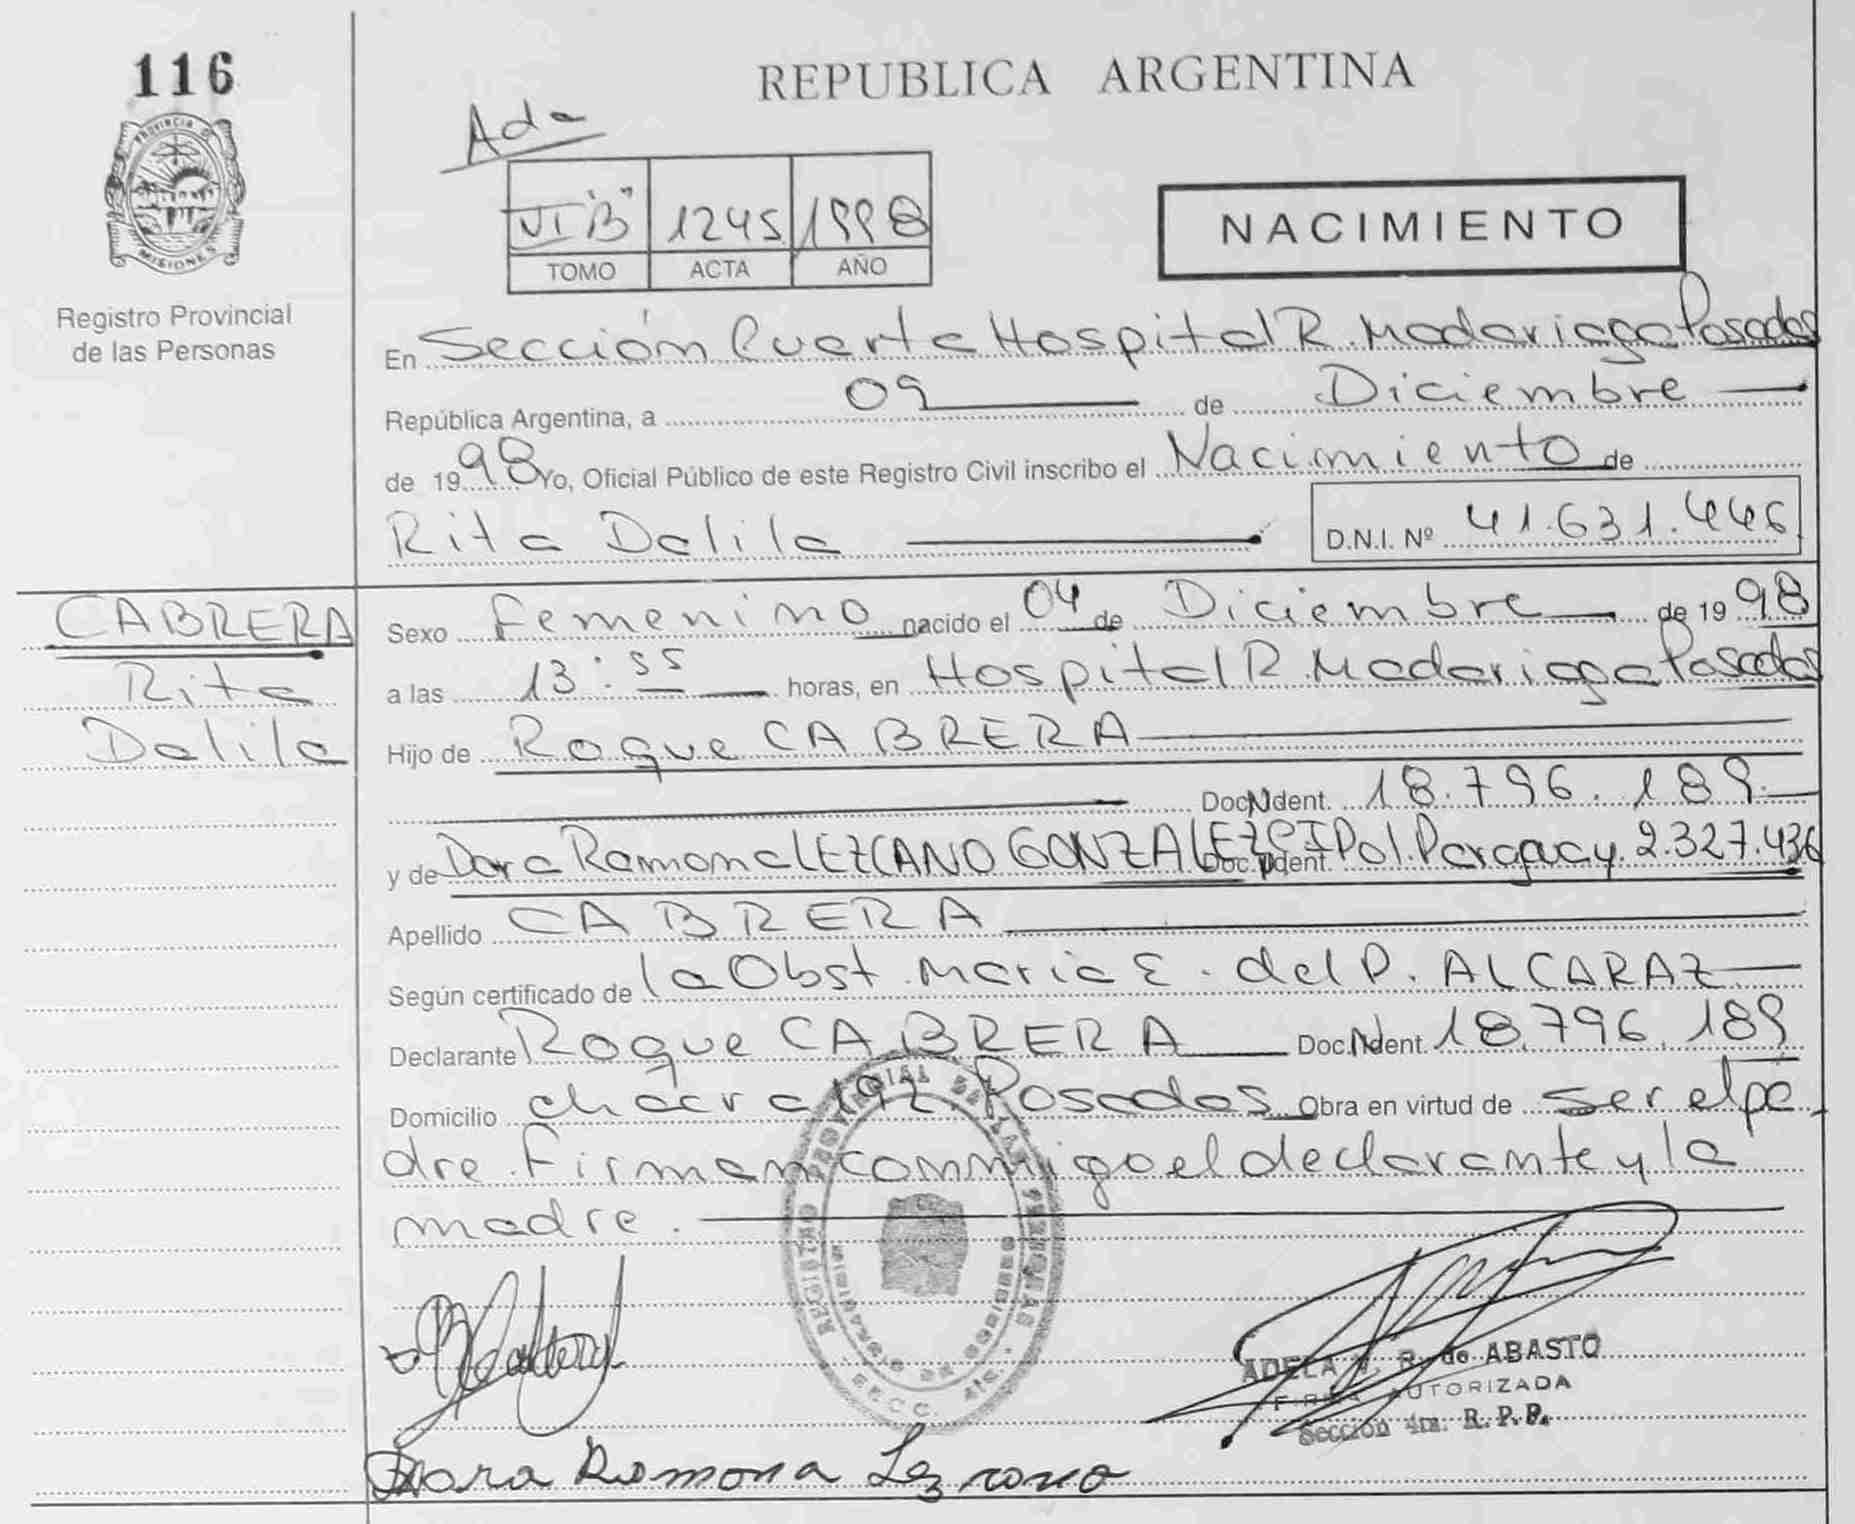 116
REPUBLICA ARGENTINA
Ada
PROVINCIA D MISIONES
VI "B" 1245 1998
TOMO ACTA AÑO
NACIMIENTO
Registro Provincial
de las Personas
En Sección Cuarta Hospital R. Madariaga Posadas
República Argentina, a 09 de Diciembre
de 1998 Yo, Oficial Público de este Registro Civil inscribo el Nacimiento de
Rita Dalila
D.N.I. Nº 41.631.446
CABRERA
Rita
Dalila
Sexo Femenino nacido el 04 de Diciembre de 1998
a las 13:55 horas, en Hospital R. Madariaga Posadas
Hijo de Roque CABRERA
Doc. Ident. 18.796.189
y de Dora Ramona LEZCANO GONZALEZ Doc. Ident. CI Pol. Paraguay. 2.327.436
Apellido CABRERA
Según certificado de la Obst. Maria E. del P. ALCARAZ
Declarante Roque CABRERA Doc. Ident. 18.796.189
Domicilio chacra 192 Posadas Obra en virtud de ser el pa
dre. Firman conmigo el declarante y la
madre.
REGISTRO PROVINCIAL DE LAS PERSONAS
ADELA R. de ABASTO
FIRMA AUTORIZADA
Sección 4ta. R.P.P.
Dora Ramona Lezcano